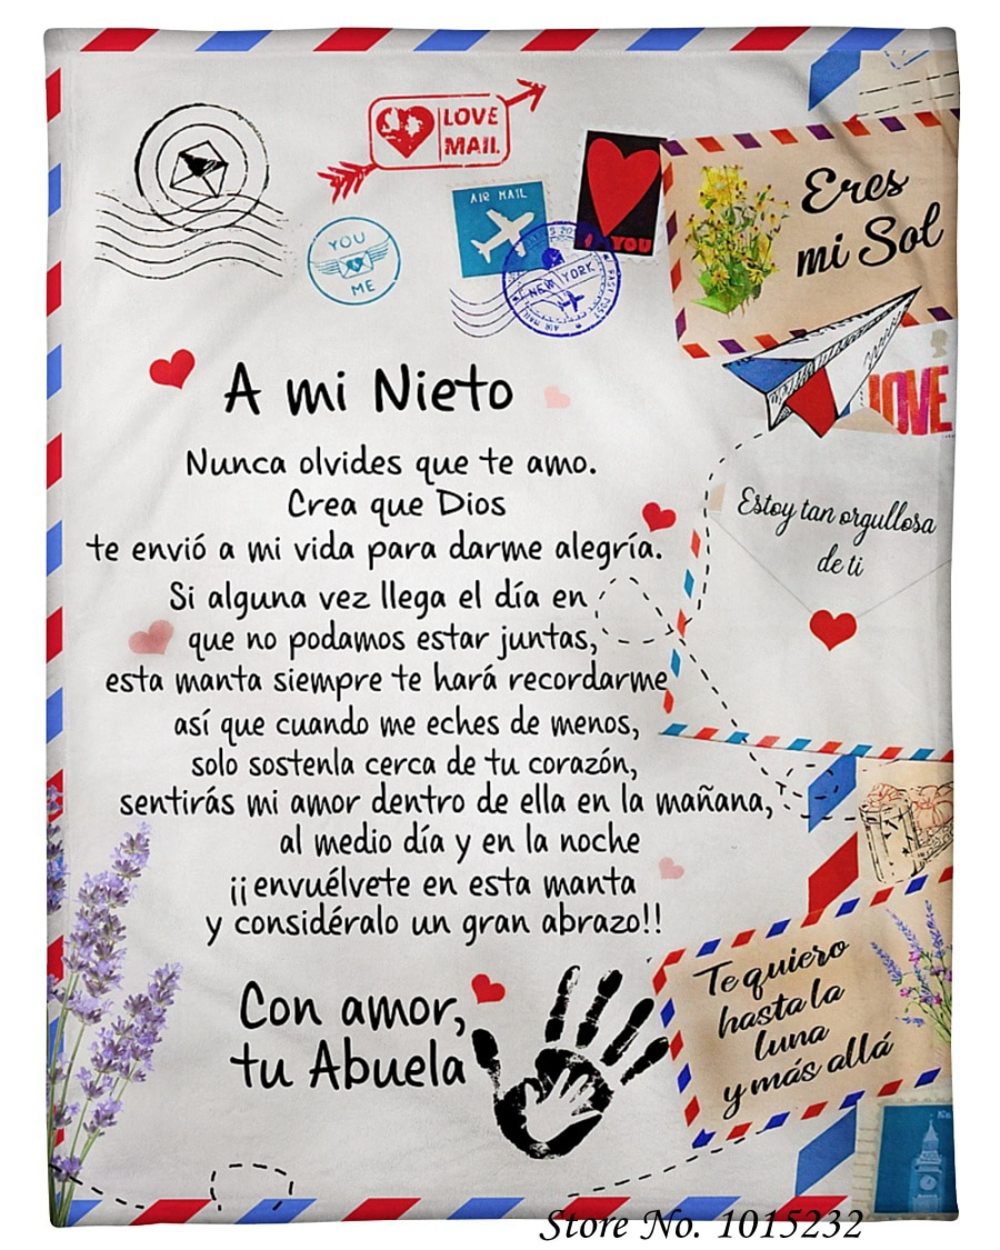 LOVE
MAIL
AIR MAIL
YOU
ME
NEW YORK
YOU
Eres
mi Sol
LOVE
A mi Nieto
Nunca olvides que te amo.
Crea que Dios
te envió a mi vida para darme alegría.
Si alguna vez llega el día en
que no podamos estar juntas,
esta manta siempre te hará recordarme
así que cuando me eches de menos,
solo sostenla cerca de tu corazón,
sentirás mi amor dentro de ella en la mañana,
al medio día y en la noche
¡¡envuélvete en esta manta
y considéralo un gran abrazo!!
Con amor,
tu Abuela
Estoy tan orgullosa
de ti
Te quiero
hasta la
luna
y más allá
Store No. 1015232